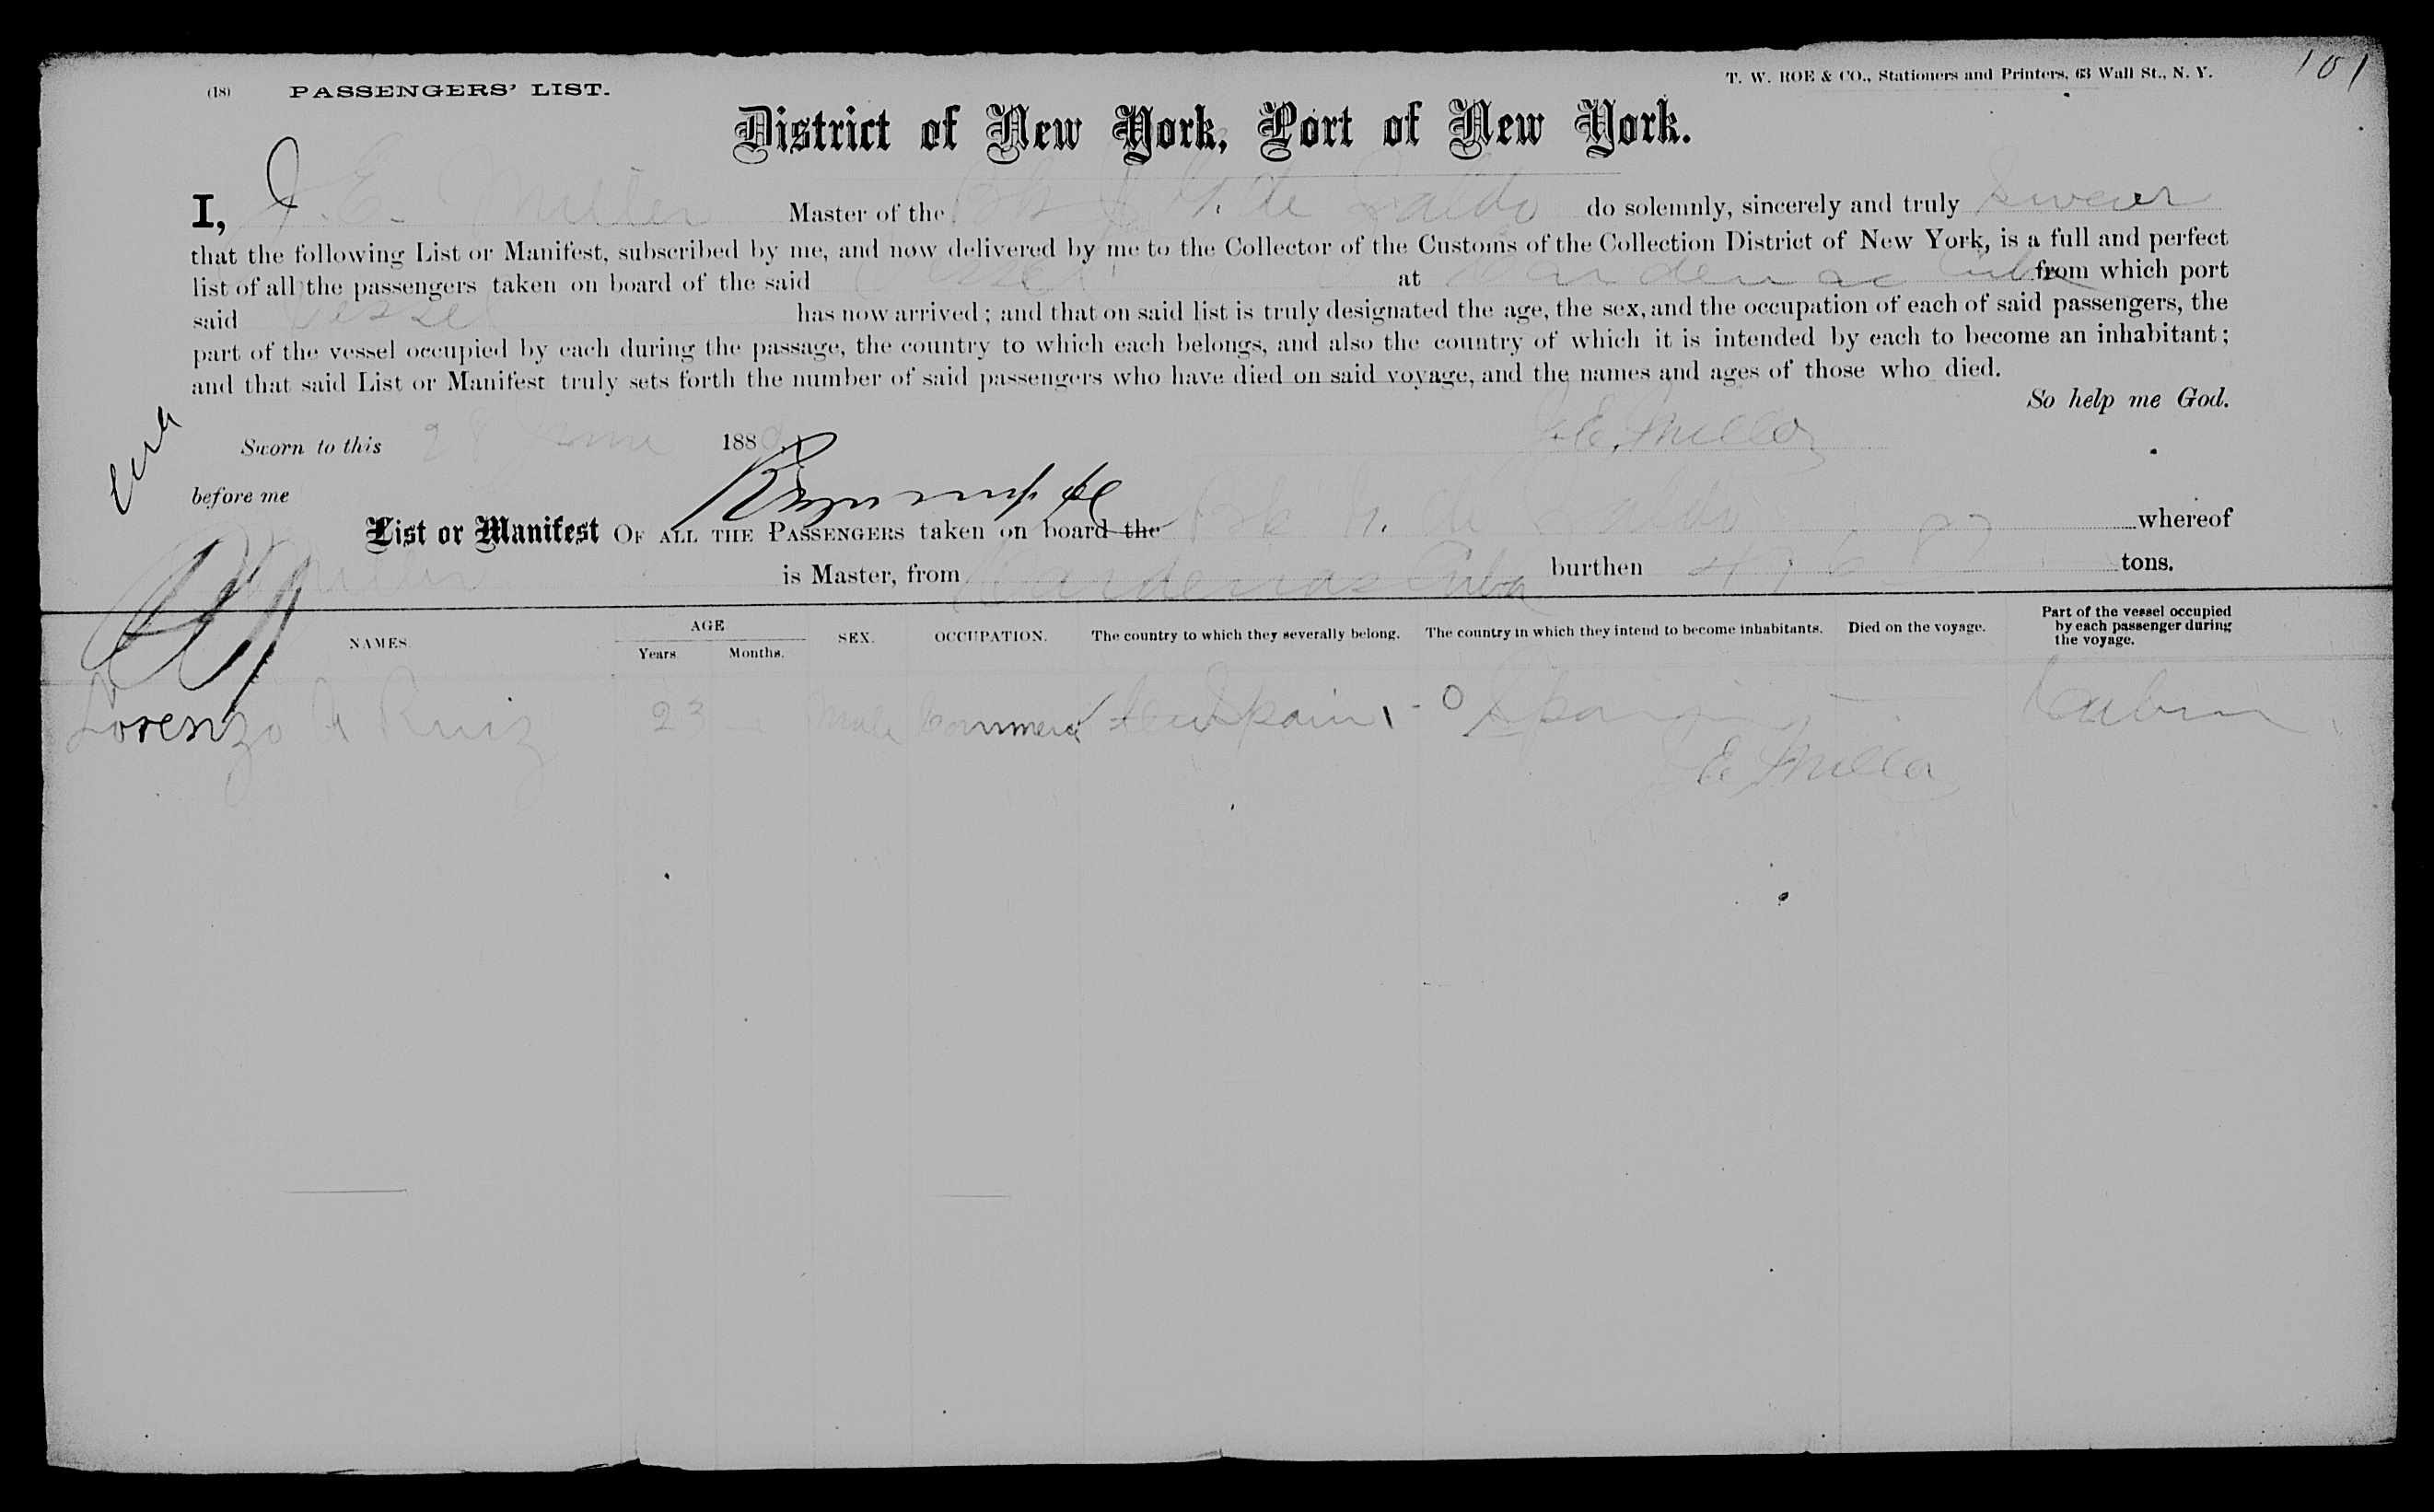 101
(18) PASSENGERS' LIST.
T. W. ROE & CO., Stationers and Printers, 63 Wall St., N. Y.
District of New York, Port of New York.
I, J. E. Miller Master of the Bk de do solemnly, sincerely and truly swear
that the following List or Manifest, subscribed by me, and now delivered by me to the Collector of the Customs of the Collection District of New York, is a full and perfect
list of all the passengers taken on board of the said Vessel at Cardenas Cuba from which port
said Vessel has now arrived; and that on said list is truly designated the age, the sex, and the occupation of each of said passengers, the
part of the vessel occupied by each during the passage, the country to which each belongs, and also the country of which it is intended by each to become an inhabitant;
and that said List or Manifest truly sets forth the number of said passengers who have died on said voyage, and the names and ages of those who died.
So help me God.
Sworn to this 28 June 188 J. E. Miller
before me
List or Manifest OF ALL THE PASSENGERS taken on board the Bk de whereof
Miller is Master, from Cardenas Cuba burthen tons.
NAMES. AGE Years. Months. SEX. OCCUPATION. The country to which they severally belong. The country in which they intend to become inhabitants. Died on the voyage. Part of the vessel occupied by each passenger during the voyage.
Lorenzo A Ruiz 23 — Male Spain Spain — Cabin
J E Miller